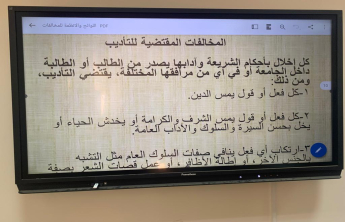 المخالفات المقتضية للتأديب
كل إخلال بأحكام الشريعة وآدابها يصدر من الطالب أو الطالبة
داخل الجامعة أو في أي من مرافقها المختلفة، يقتضي التأديب،
ومن ذلك:
١-كل فعل أو قول يمس الدين.
٢-كل فعل أو قول يمس الشرف والكرامة أو يخدش الحياء أو
يخل بحسن السيرة والسلوك والآداب العامة.
٣-ارتكاب أي فعل ينافي صفات السلوك العام مثل التشبه
بالجنس الآخر، أو إطالة الأظافر، أو عمل قصات الشعر بصفة